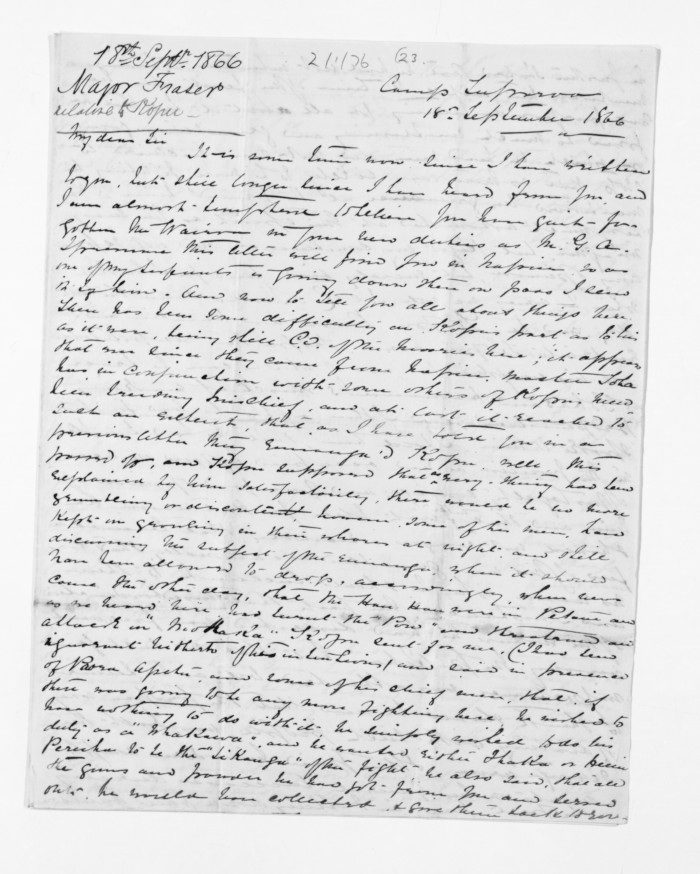 18th Septr. 1866
21/1/76
23.
Major Fraser
relative to Kopu
Camp
18th September 1866
My dear Sir
It is some time now since I have written
to you, but still longer since I have heard from you, and
I am almost to believe you have quite for
gotten the Wairoa in your new duties as M. G. A.
I presume this letter will find you in Napier, so as
one of my Serjeants is going down there on pass I send
it by him. And now to tell you all about things here
There has been some difficulty on Kopu's part as to his
as it were, being still C.O. of the Maories here; it appears
that ever since they came from Napier, Master Ihaka
has, in conjunction with some others of Kopu's
been breeding mischief, and at last it reached to
such an extent, that, as I have told you in a
previous letter they Kopu, well, this
passed by, and Kopu supposed that every thing had been
explained by him satisfactorily, there would be no more
grumbling or discontent however, some of his men, have
kept on growling in their whares at night and still
discussing the subject of the when it should
have been allowed to drop, accordingly, when news
came the other day, that the Hau Haus were in
as we heard here, had burnt the Pa and threatened an
attack on "Mohaka" Kopu sent for me, (I had been
ignorant hitherto of his intentions) and said in presence
of and some of his chief men, that, if
there was going to be any more fighting here, he wished to
have nothing to do with it. he simply wished to do his
duty as a "Whakawa", and he wanted either Ihaka or
to be the of the fight. he also said, that all
the guns and powder he had got from you and served
out, he would have collected & give them back to